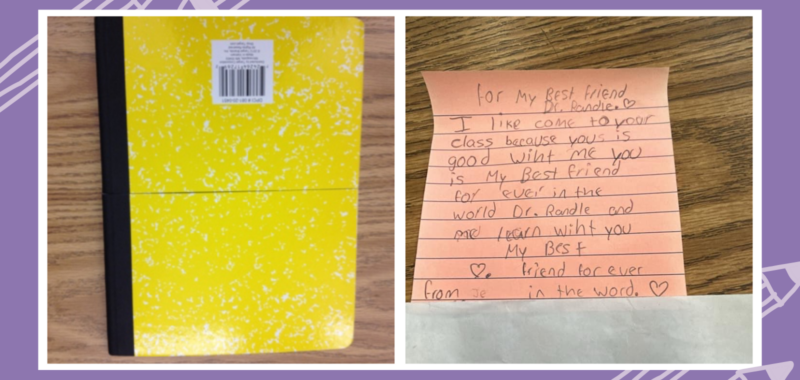 For My Best Friend
Dr. Randle. ♡
I like come to your
class because yous is
good wiht me you
is My Best Friend
for ever in the
world Dr. Randle and
me learn wiht you
My Best
♡. friend for ever
from Je in the word. ♡